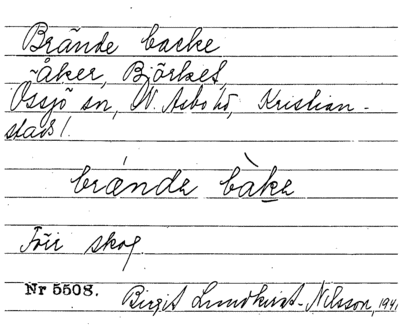 Brände backe
åker, Björket,
Össjö sn, N. Åsbo hd, Kristian-
stads l.
bránda bàke
Förr skog
Nr 5508. Birgit Lundkvist-Nilsson, 1941